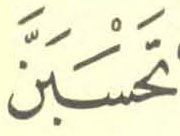 تَحْسَبَنَّ